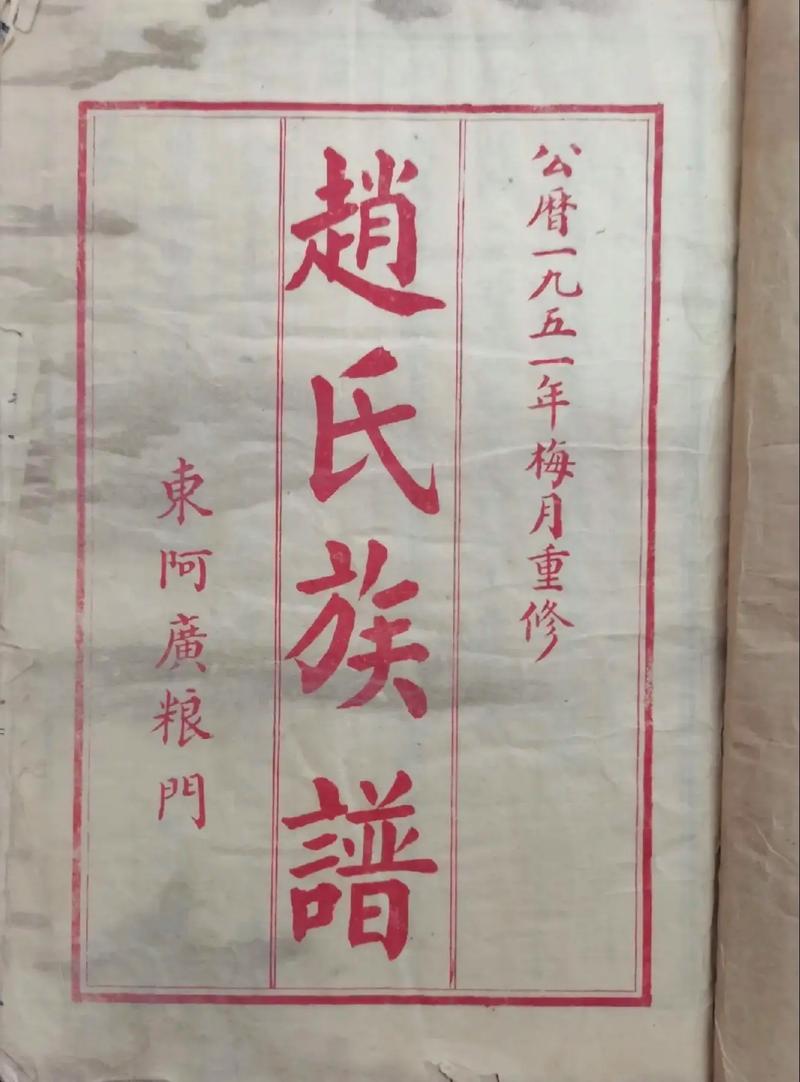 公曆一九五一年梅月重修
趙氏族譜
東阿廣粮門